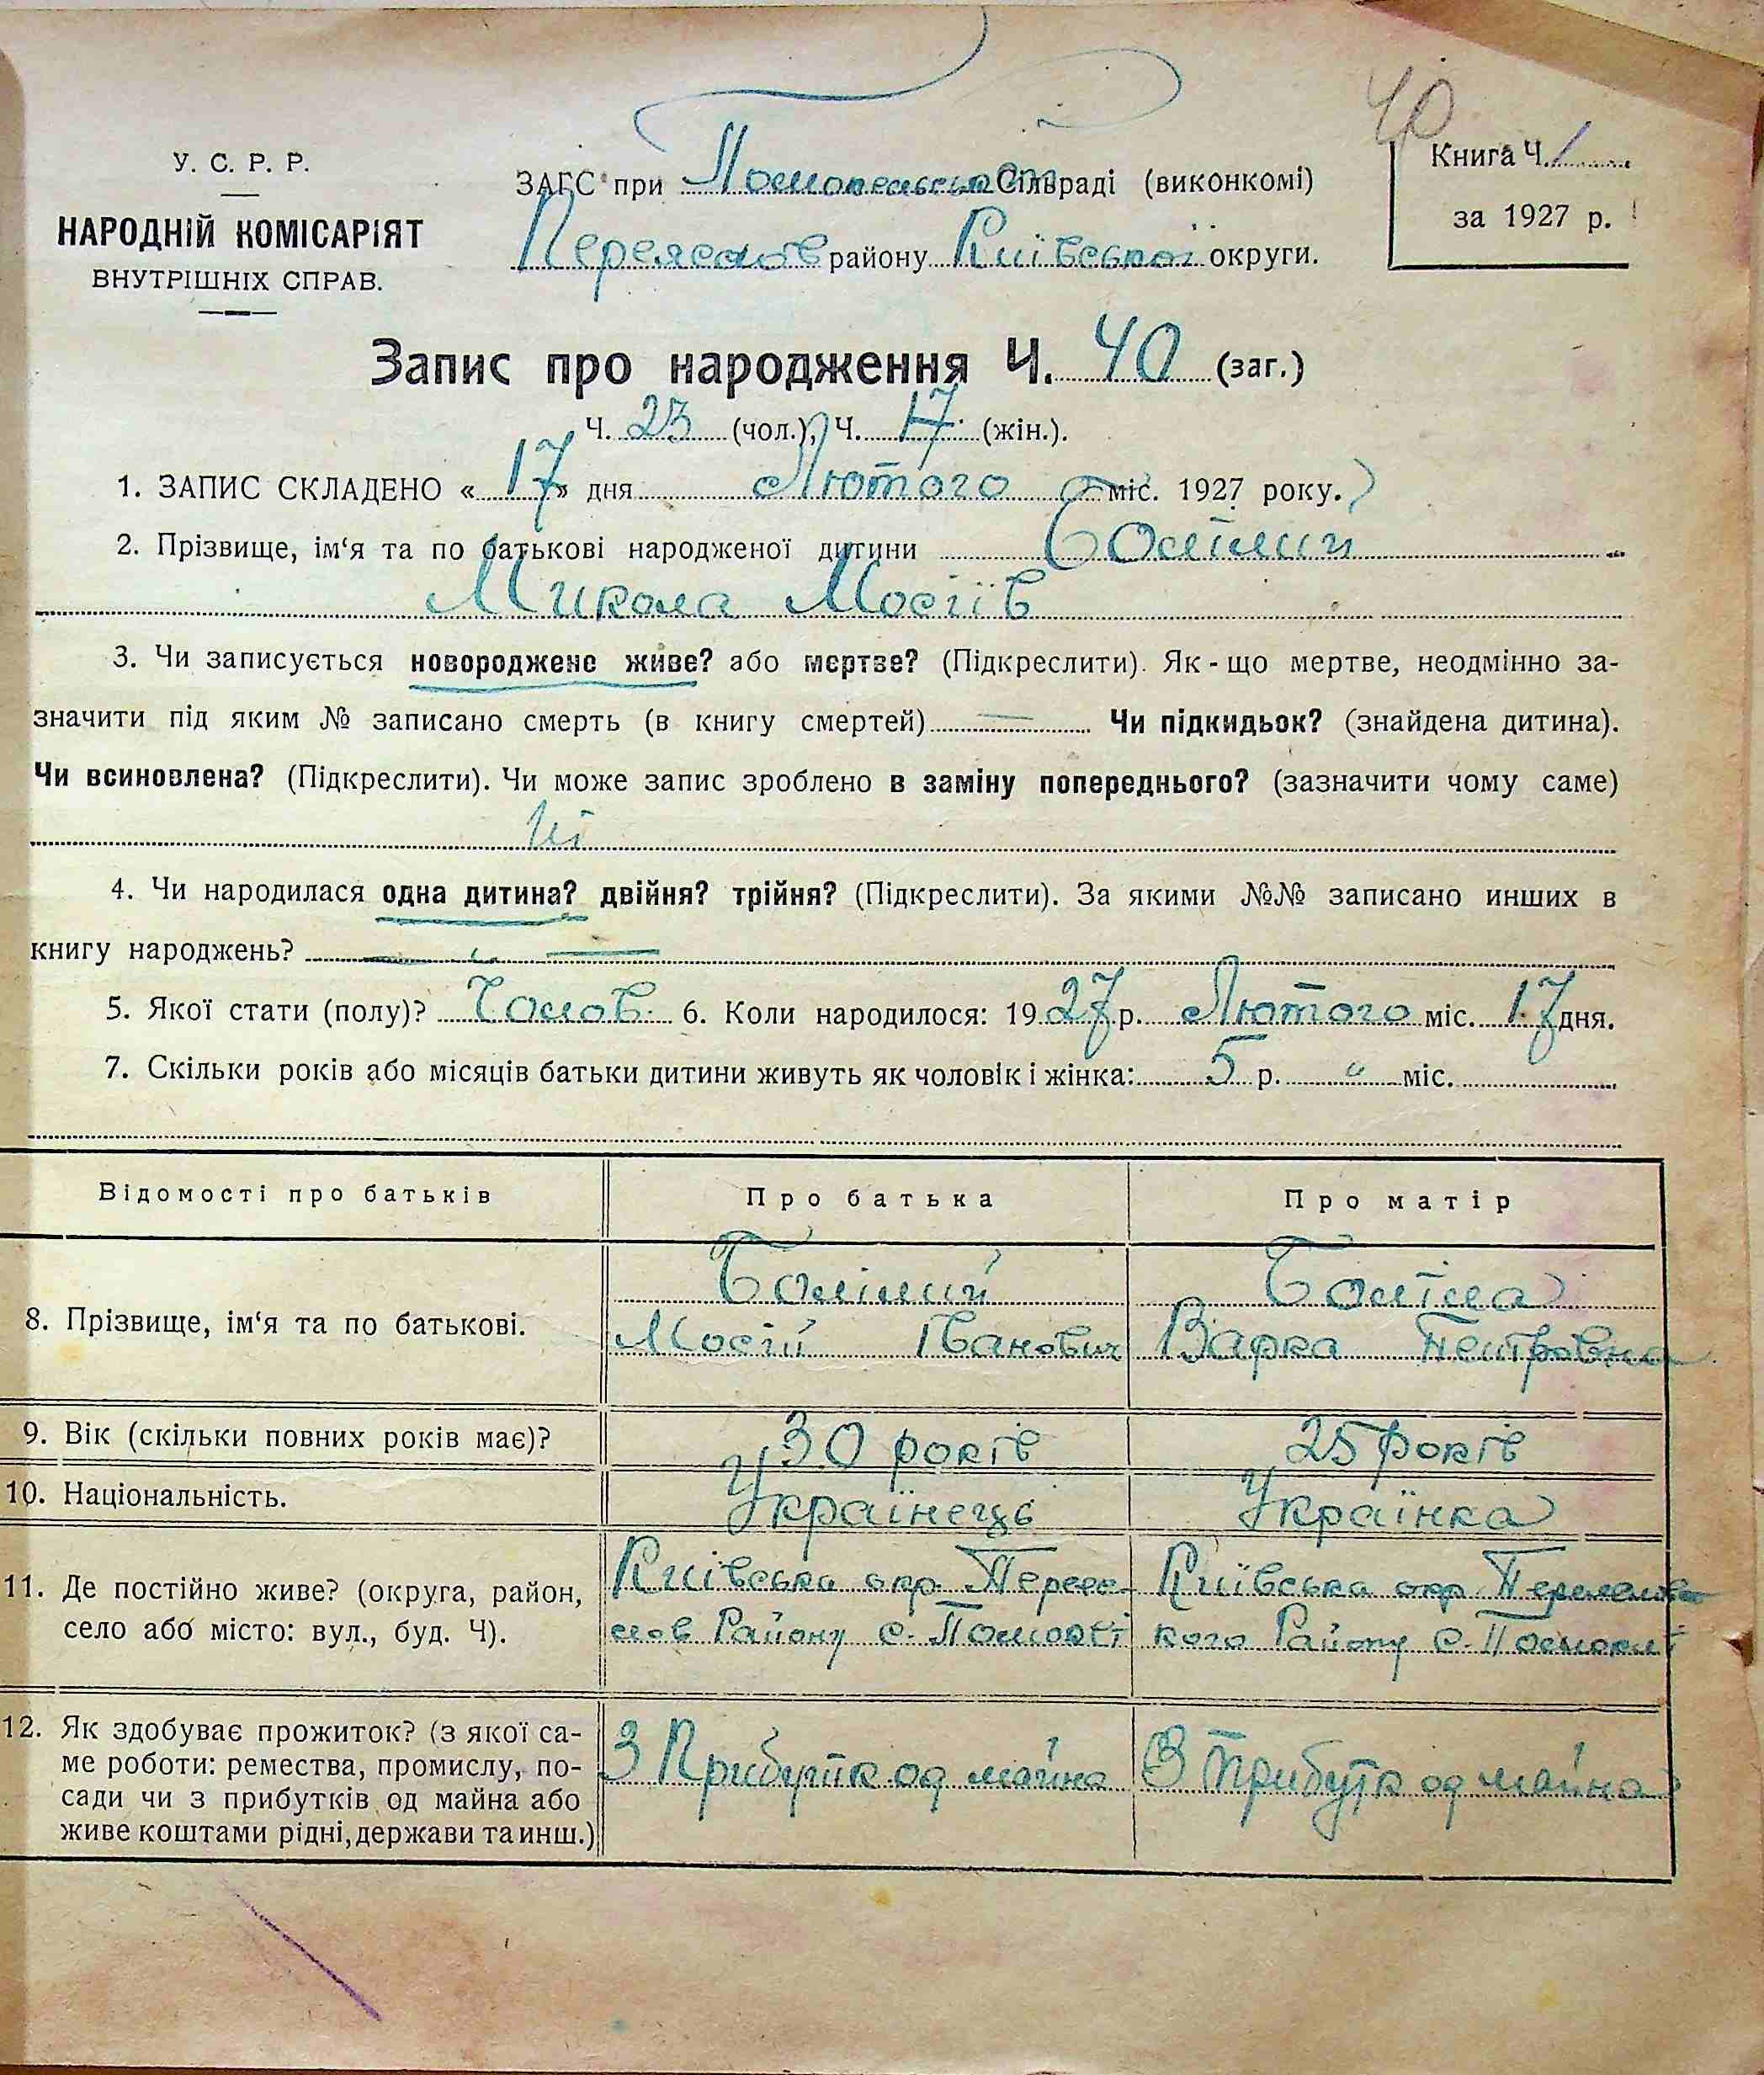 40
У. С. Р. Р.
НАРОДНІЙ КОМІСАРІЯТ
ВНУТРІШНІХ СПРАВ.
ЗАГС при Помокельській Сільраді (виконкомі)
Переяслов району Київської округи.
Книга Ч. 1
за 1927 р.
Запис про народження Ч. 40 (заг.)
Ч. 23 (чол.), Ч. 17 (жін.).
1. ЗАПИС СКЛАДЕНО « 17 » дня Лютого міс. 1927 року.
2. Прізвище, ім‘я та по батькові народженої дитини
Микола Мосіїв
3. Чи записується новороджене живе? або мертве? (Підкреслити). Як - що мертве, неодмінно за-
значити під яким № записано смерть (в книгу смертей) — Чи підкидьок? (знайдена дитина).
Чи всиновлена? (Підкреслити). Чи може запис зроблено в заміну попереднього? (зазначити чому саме)
Ні
4. Чи народилася одна дитина? двійня? трійня? (Підкреслити). За якими №№ записано инших в
книгу народжень? — „ —
5. Якої стати (полу)? Чолов. 6. Коли народилося: 1927 р. Лютого міс. 17 дня.
7. Скільки років або місяців батьки дитини живуть як чоловік і жінка: 5 р. „ міс.
Відомості про батьків Про батька Про матір
8. Прізвище, ім‘я та по батькові.
Мосій Іванович Варка Петровна
9. Вік (скільки повних років має)? 30 років 25 років
10. Національність. Українець Українка
11. Де постійно живе? (округа, район, Київська окр. Переяс- Київська окр. Переяслов
село або місто: вул., буд. Ч). слов Району с. Помоклі кого Району с. Помоклі
12. Як здобуває прожиток? (з якої са-
ме роботи: ремества, промислу, по- З Прибутк од майна З Прибутк од майна
сади чи з прибутків од майна або
живе коштами рідні, держави та инш.)